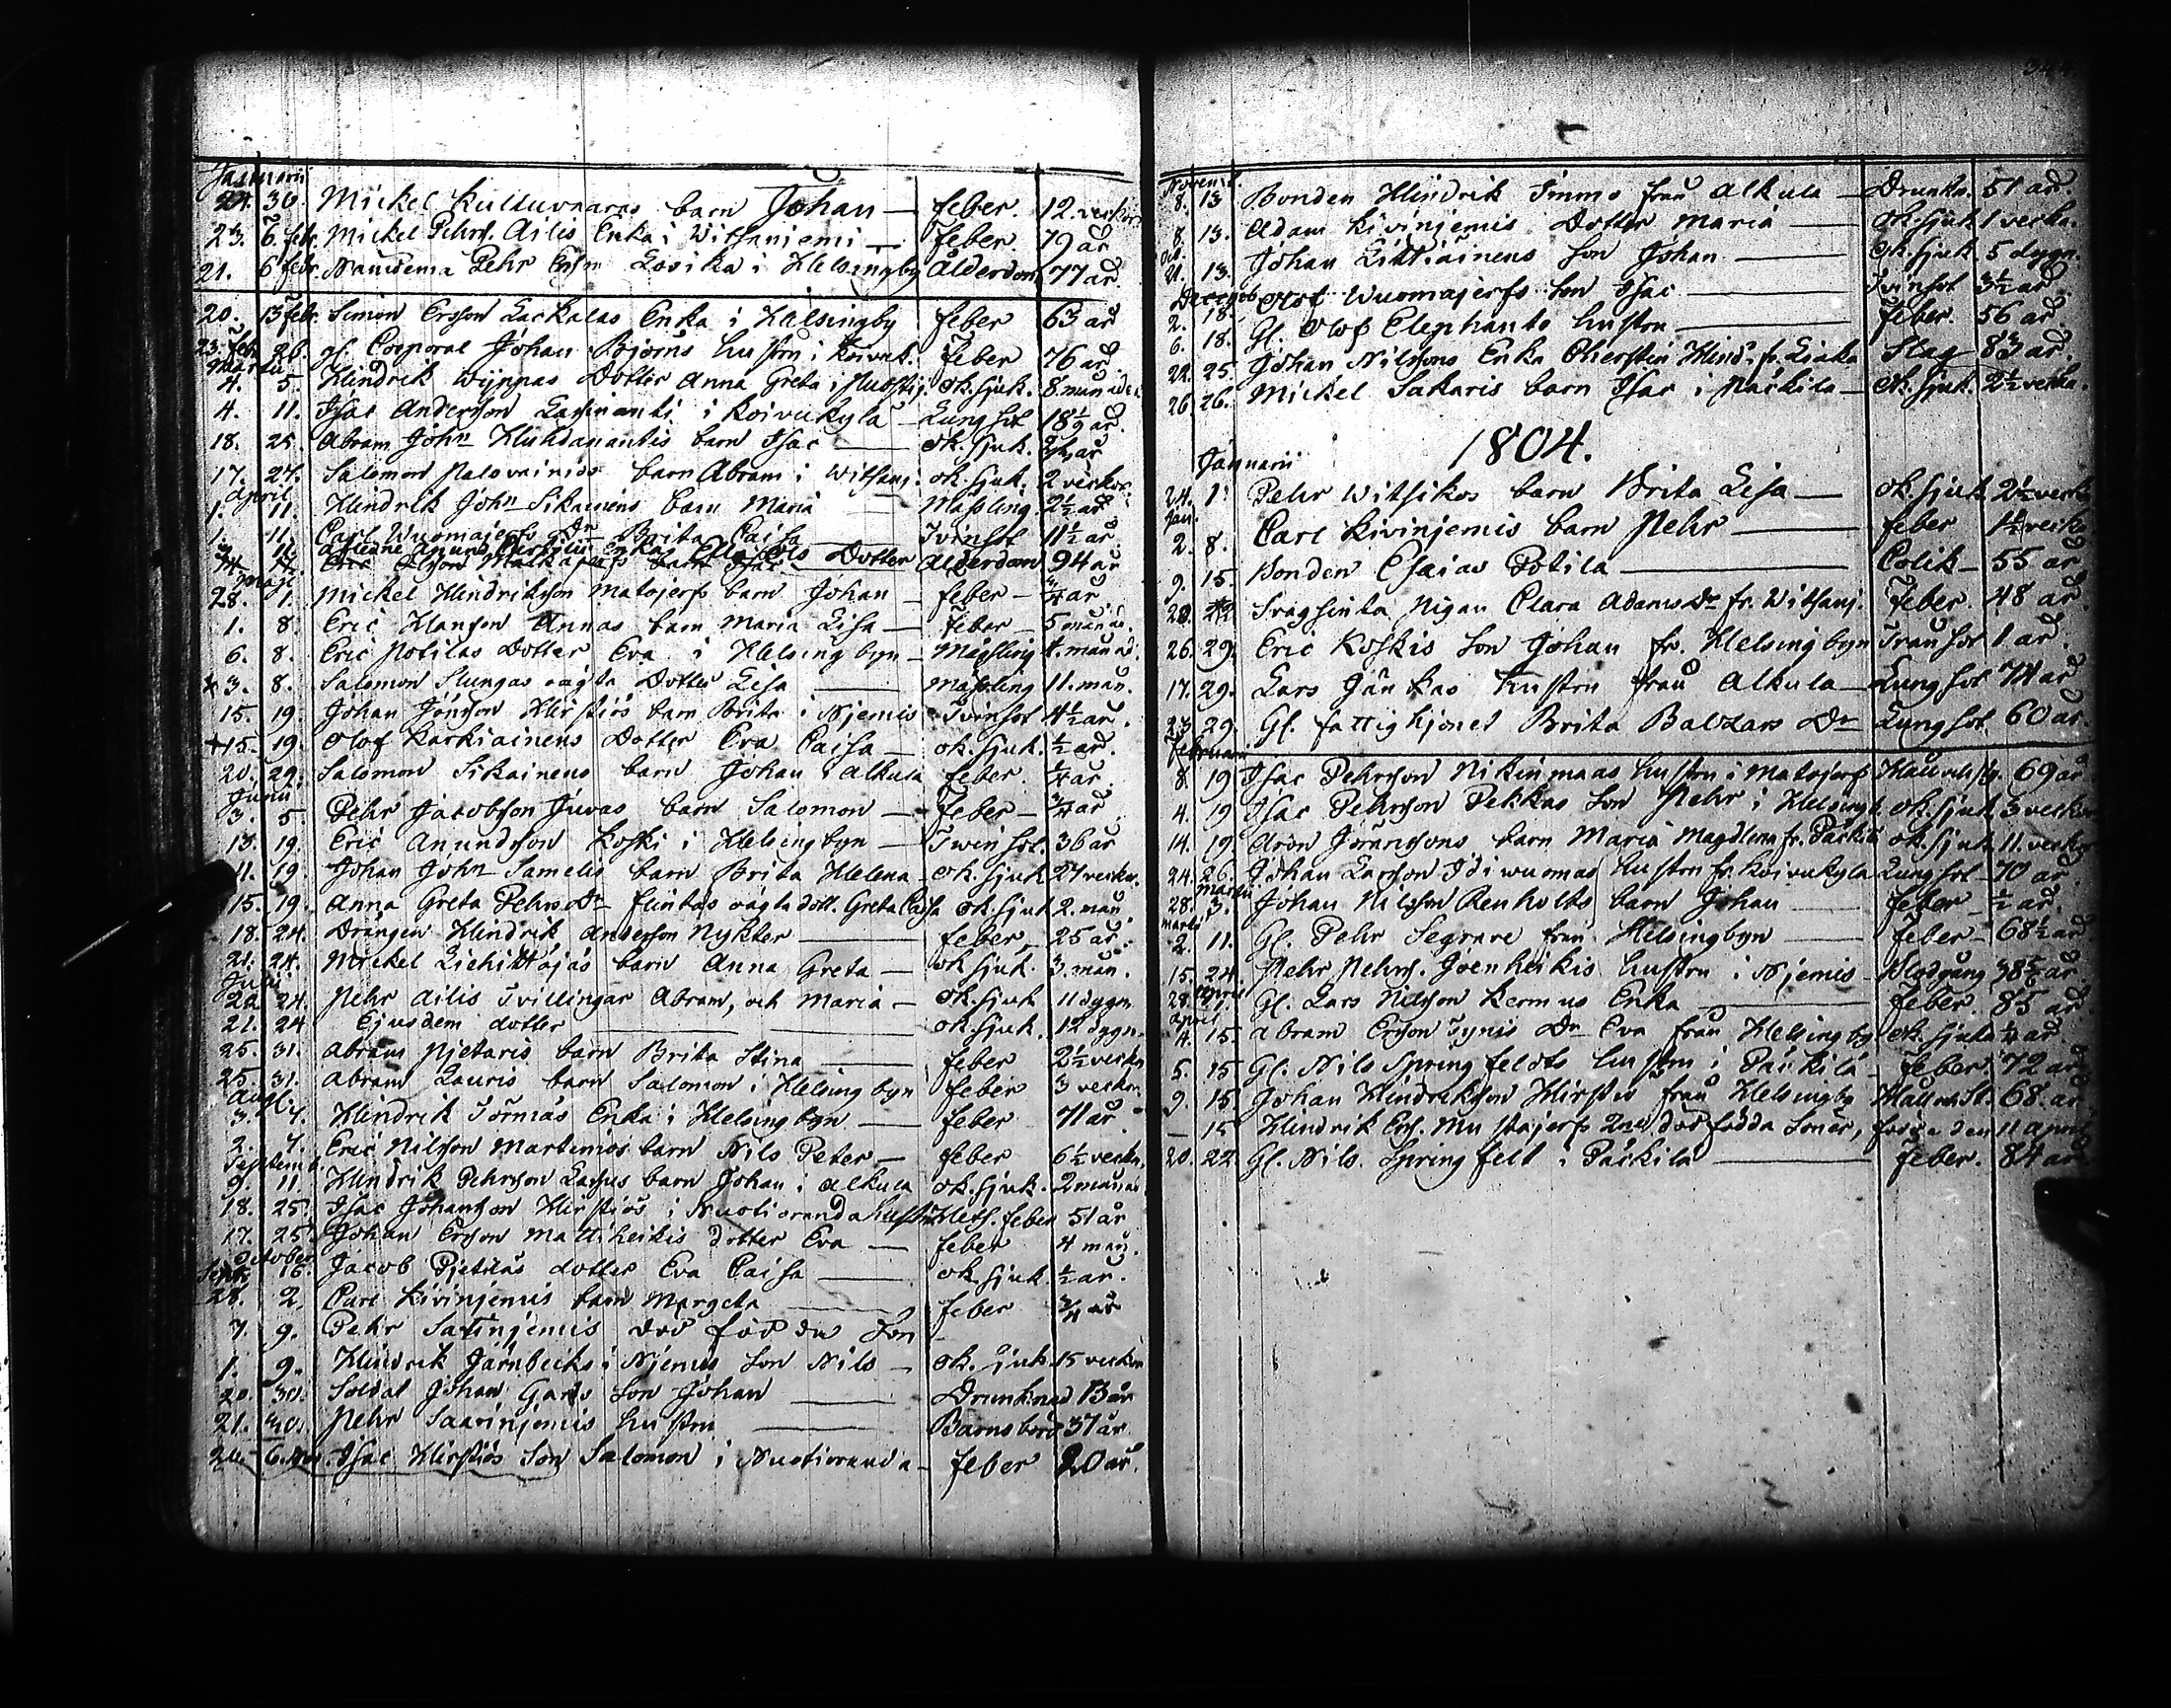 Januarii
24. 30. Mickel Kulduvaaras barn Johan — feber. 12. veckor
23. 6. febr. Mickel Pehrs. Ailis Enka i Witsaniemi — feber. 79 år
21. 6 febr. Nämdem. Pehr Enka i Helsingby Ålderdom 77 år.
20. 13 febr. Simon Ersson Lackalas Enka i Helsingby feber 63 år
23. feb. 26. gl. Corporal Johan Björns hustru i Koivuk. feber 76 år.
Martii
4. 5. Hindrik Wynnas Dotter Anna Greta i ok. sjuk. 8. månader
4. 11. Isac Andersson i Koivukylä Lungsot 18½ år.
18. 25. Abram Johns Huhdanantis barn Isac — ok. sjuk. ½ år
17. 27. Salomon Palovainios barn Abram i Witsanj. ok. sjuk. 2 veckor
April
1. 11. Hindrik Johns Sikainens barn Maria — Mässling. 2½ år
1. 11. Carl Wuomajerfs Dr Brita Caisa Tvinsot 11½ år.
Enka Dotter Ålderdom 94 år
Maji
28. 1. Mickel Hindriksson Matojerfs barn Johan — feber — ¾ år
1. 8. Eric Hansson Annas barn Maria Lisa — feber — 5 månad.
6. 8. Eric Potilas Dotter Eva i Helsingbyn — Mässling 4. månad.
3. 8. Salomon Slungas oägta Dotter Lisa — Mässling 11. mån.
15. 19. Johan Jönsson Hirstiös barn Brita i Njemis Tvinsot 4½ år.
15. 19. Olof Karkiainens Dotter Eva Caisa — ok. sjuk. ½ år.
20. 29. Salomon Sikainens barn Johan i Alkula feber. ¼ år.
Junii
3. 5. Pehr Jacobsson Juvas barn Salomon — feber — ¼ år
13. 19. Eric Anundsson Koski i Helsingbyn — Twinsot. 36 år
11. 19. Johan Johns Samelis barn Brita Helena — ok. sjuk 24 veckor.
15. 19. Anna Greta Pehrs Dr flintas oägta dott. Greta Caisa ok. sjuk 2. mån.
18. 24. Drängen Hindrik Andersson Nykter — feber 25 år.
21. 24. Mickel barn Anna Greta — ok sjuk. 3. mån.
Julii
22. 24. Pehr Ailis Tvillingar Abram, och Maria — ok. sjuk 11 dygn
21. 24 Ejusdem dotter — ok. sjuk. 12 dygn.
25. 31. Abram Pjetaris barn Brita Stina — feber 2½ veckor
25. 31. Abram Lauris barn Salomon i Helsingbyn feber 3 veckor.
Aug.
3. 7. Hindrik Törmäs Enka i Helsingbyn — feber 71 år.
2. 7. Eric Nilsson Martimos barn Nils Peter — feber 6½ veckor
Septemb.
9. 11. Hindrik Pehrsson Lassus barn Johan i Alkula ok. sjuk. 2 månad
18. 25. Isac Johansson Hirstiös i Nuotioranda hustru Hets. feber 51 år
17. 25. Johan Ersson Mattiheikis dotter Eva — feber 4 mån.
October
Sept. 16. Jacob Pietiläs dotter Eva Caisa — ok. sjuk ½ år.
28. 2. Carl Kivinjemis barn Margeta — feber ¾ år
7. 9. Pehr Satinjemis död född Son
1. 9. Hindrik Järnbecks i Njemis Son Nils — ok. sjuk 15 veckor
20. 30. Soldat Johan Gards Son Johan — Drunknad 13 år
21. 30. Pehr Saarinjemis hustru — Barnsbörd 37 år
24. 6. Nov. Isac Hirstiös Son Salomon i Nuotioranda — feber 20 år.
Novemb.
8. 13 Bonden Hindrik Immo från Alkula — Drunkn. 51 år.
8. 13. Adam Kivinjemis Dotter Maria — ok. sjuk 1 vecka.
Oct.
21. 13. Johan Littiäinens Son Johan — ok. sjuk. 5 dygn.
Decemb.
2. 18. Olof Wuomajerfs Son Isac — Tvinsot 3½ år
6. 18. Gl. Olof Elephants hustru — feber. 56 år
22. 25 Johan Nilssons Enka Cherstin Hind. fr. Slag — 83 år.
26. 26. Mickel Sakaris barn Isac i Päckilä — ok. sjuk. 2½ vecka.
1804.
Januarii
24. 1. Pehr Witsikos barn Brita Lisa — ok. sjuk. 2½ veckor
Jan.
2. 8. Carl Kivinjemis barn Pehr — feber 1½ vecka
9. 15. Bonden Esaias Potila — Colik — 55 år
28. Pigan Clara Adams Dr fr. Witsanj. feber. 48 år.
26. 29. Eric Koskis Son Johan fr. Helsingbyn Trånsot 1 år.
17. 29. Lars Jänkas hustru från Alkula — Lungsot 74 år
23 29. Gl. fattighjonet Brita Baltzars Dr Lungsot. 60 år.
Februarii
8. 19 Isac Pehrsson Nikinmaas hustru i Matojerf Håll och st. 69 år
4. 19 Isac Pehrsson Pekkas Son Pehr i Helsingb. ok. sjuk 3 veckor
14. 19 Aron Jöranssons barn Maria Magdlena fr. Päckilä ok. sjuk 11. veckor
24. 26. Johan Larsson Idiwuomas hustru fr. Koivukylä Lungsot — 70 år
Martii
28. 3. Johan Nilsson Renholts barn Johan — feber — ½ år.
Martii
2. 11. Gl. Pehr Segrare från Helsingbyn — feber — 68½ år
15. 24. Pehr Pehrs. Joenheikis hustru i Njemis — Blodgång 38 år
28. April Gl. Lars Nilsson Kermus Enka — feber. 85 år
April
4. 15. Abram Ersson Tynis Dr Eva från Helsingby ok. sjuka ¼ år.
5. 15 Gl. Nils Springfeldts hustru i Päckilä — feber. 72 år
9. 15. Johan Hindriksson Hirstio från Helsingby Håll och St. 68. år
— 15 Hindrik Ers. Mustajerfs 2ne död födda Söner, födde den 11 April
20. 22. Gl. Nils Springfelt i Päckilä — feber. 84 år